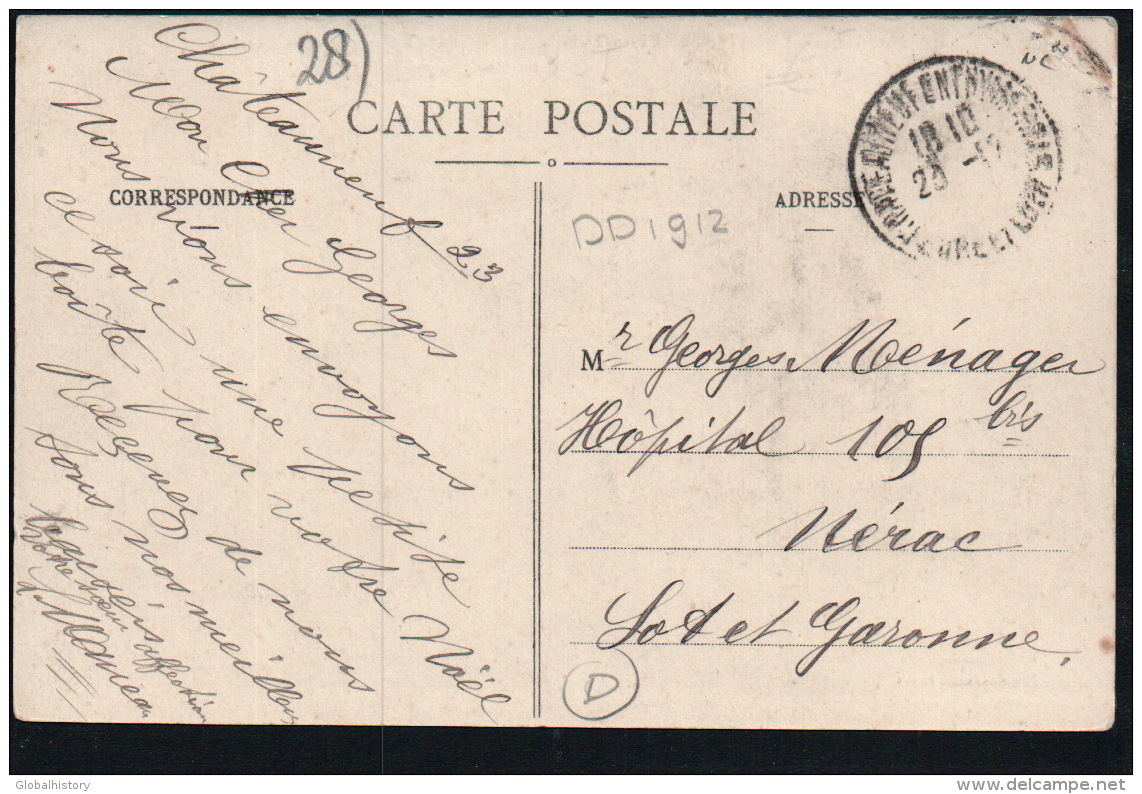 28)
CARTE POSTALE
CORRESPONDANCE
ADRESSE
DD1912
Châteauneuf 23
Mon Cher Georges
Nous vous envoyons
ce soir une petite
boîte pour votre Noël
Recevez de nous
tous nos meilleurs
affection
18 10
23 -12
EURE ET LOIR
Mr Georges Ménager
Hôpital 105 bis
Nérac
Lot et Garonne
D
Globalhistory
delcampe.net